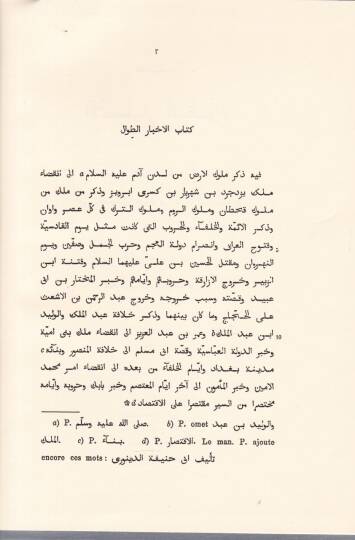 ٢
كتاب الاخبار الطوال
فيه ذكر ملوك الارض من لدن آدم عليه السلام a الى انقضاء
ملك يزدجرد بن شهريار بن كسرى ابرويز وذكر من ملك من
ملوك قحطان وملوك الروم وملوك الترك فى كلّ عصر واوان
وذكر الائمّة والخلفآء والحروب التى كانت مثل يوم القادسيّة
وفتوح العراق وانصرام دولة العجم وحرب الجمل وصفّين ويوم 5
النهروان ومقتل الحسين بن علىّ عليهما السلام وفتنة ابن
الزبير وخروج الازارقة وحروبهم وايّامهم وخبر المختار بن ابى
عبيد وقصّته وسبب خروجه وخروج عبد الرحمن بن الاشعث
على الحجّاج وما كان بينهما وذكر خلافة عبد الملك والوليد
ابن عبد الملك b وعمر بن عبد العزيز الى انقضاء ملك بنى اميّة 10
وخبر الدولة العبّاسيّة وقصّة ابى مسلم الى خلافة المنصور وبنائه c
مدينة بغداد وايّام الخلفآء من بعده الى انقضاء امر محمد
الامين وخبر المأمون الى آخر ايّام المعتصم وخبر بابك وحروبه وايّامه
مختصرا من السير مقتصرا على الاقتصاد d
a) P. صلى الله عليه وسلّم. b) P. omet والوليد بن عبد
الملك. c) P. بنآء. d) P. الاقتصار. Le man. P. ajoute
encore ces mots: تأليف ابى حنيفة الدينورى